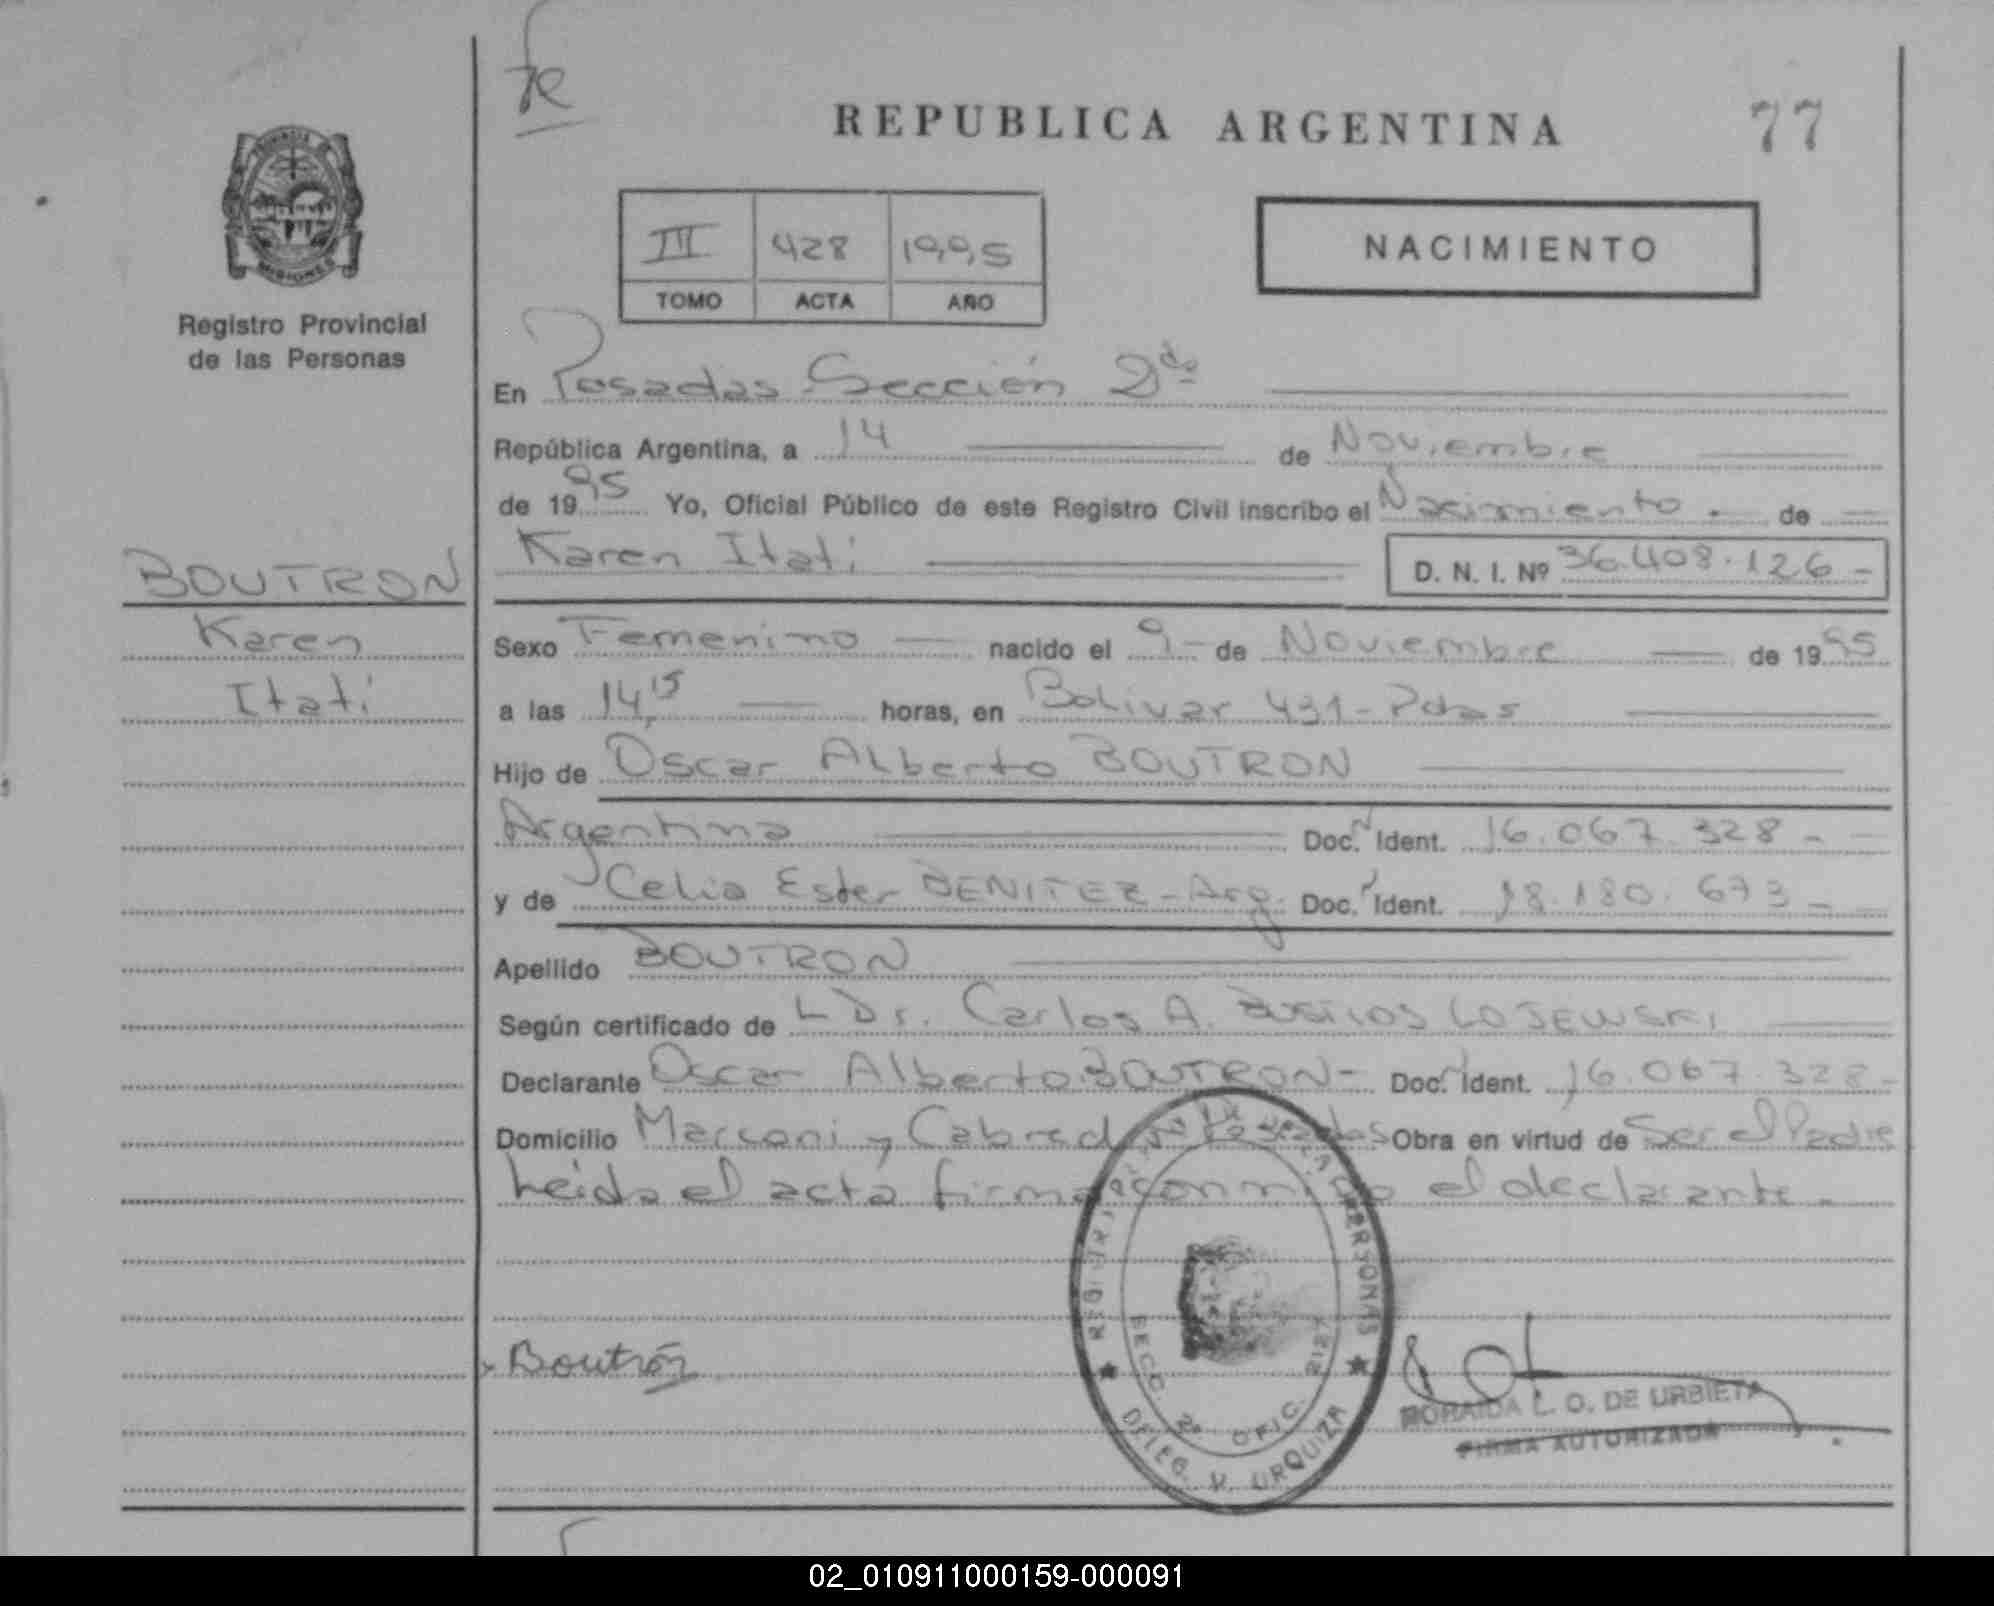 77
REPUBLICA ARGENTINA
PROVINCIA DE
MISIONES
Registro Provincial
de las Personas
III 428 1995
TOMO ACTA AÑO
NACIMIENTO
En Posadas Sección 2da
República Argentina, a 14 de Noviembre
de 1995 Yo, Oficial Público de este Registro Civil inscribo el Nacimiento de
Karen Itatí D. N. I. Nº 36.408.126-
BOUTRON
Karen
Itatí
Sexo Femenino nacido el 9 de Noviembre de 1995
a las 14,15 horas, en Bolivar 431-Pdas
Hijo de Oscar Alberto BOUTRON
Argentina Doc. Ident. 16.067.328-
y de Celia Ester BENITEZ-Arg. Doc. Ident. 18.180.673-
Apellido BOUTRON
Según certificado de Dr. Carlos A. LOJEWSKI
Declarante Oscar Alberto BOUTRON- Doc. Ident. 16.067.328-
Domicilio Marconi y Cabred Posadas Obra en virtud de Ser el Padre
Leída el acta firma conmigo el declarante.
REGISTRO PROV. DE LAS PERSONAS
SECC. 2ª OFIC. 2127
DELEG. V. URQUIZA
Boutrón
L. O. DE URBIETA
FIRMA AUTORIZADA
02_010911000159-000091